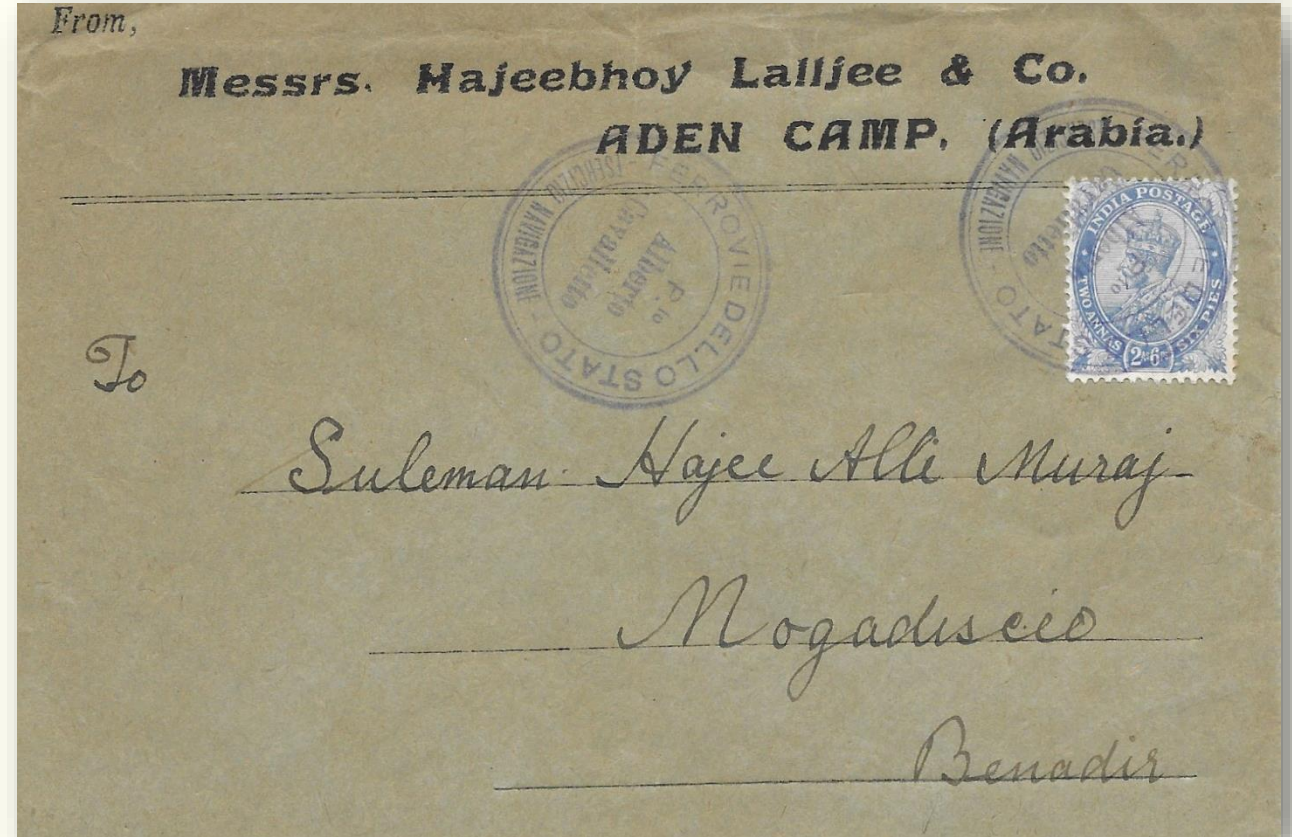 From,
Messrs. Hajeebhoy Lalljee & Co.
ADEN CAMP. (Arabia.)
FERROVIE DELLO STATO
ESERCIZIO NAVIGAZIONE
P.to
Alberto
Cavalletto
STATO
NAVIGAZIONE
INDIA POSTAGE
TWO ANNAS
SIX PIES
2As6Ps
To
Suleman Hajee Alli Muraj
Mogadiscio
Benadir